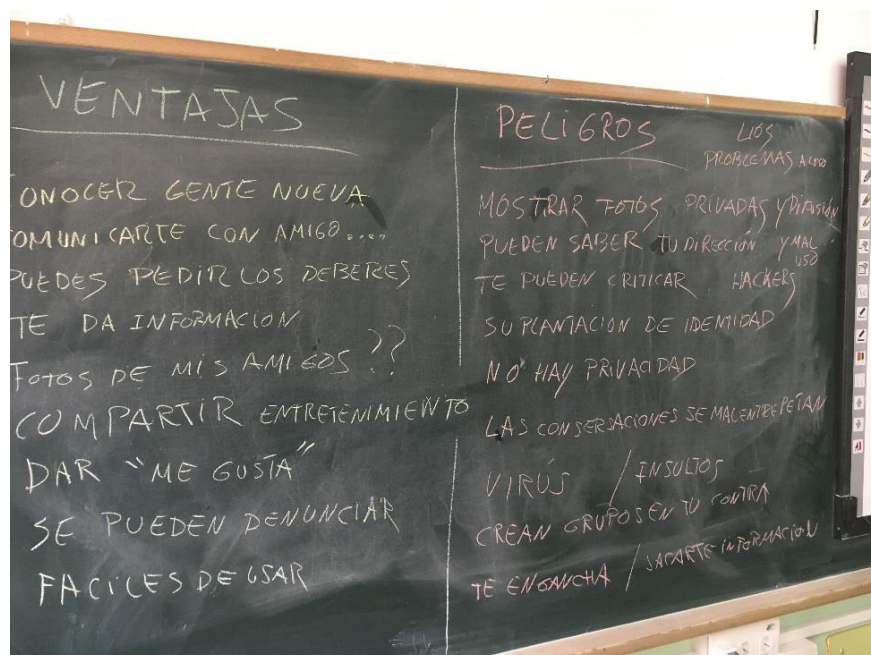 VENTAJAS
ONOCER GENTE NUEVA
OMUNICARTE CON AMIGO....
PUEDES PEDIR LOS DEBERES
TE DA INFORMACION
FOTOS DE MIS AMIGOS ??
COMPARTIR ENTRETENIMIENTO
DAR "ME GUSTA"
SE PUEDEN DENUNCIAR
FACILES DE USAR
PELIGROS
LIOS
PROBLEMAS ACOSO
MOSTRAR FOTOS PRIVADAS Y DIFUSIÓN
PUEDEN SABER TU DIRECCIÓN Y MAL
USO
TE PUEDEN CRITICAR HACKERS
SUPLANTACION DE IDENTIDAD
NO HAY PRIVACIDAD
LAS CONSERSACIONES SE MALENTREPETAN
VIRÚS / INSULTOS
CREAN GRUPOS EN TU CONTRA
TE ENGANCHA / SACARTE INFORMACION